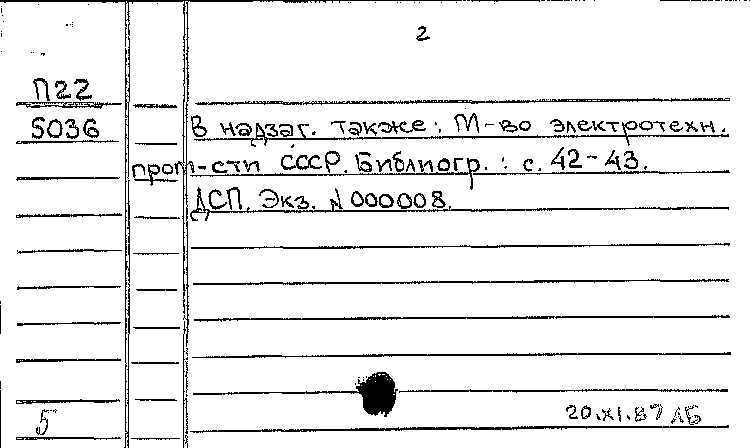 2
П22
5036 В надзаг. также: М-во электротехн.
пром-сти СССР. Библиогр.: с. 42-43.
ДСП. Экз. N 000008.
5 20.XI.87 ЛБ